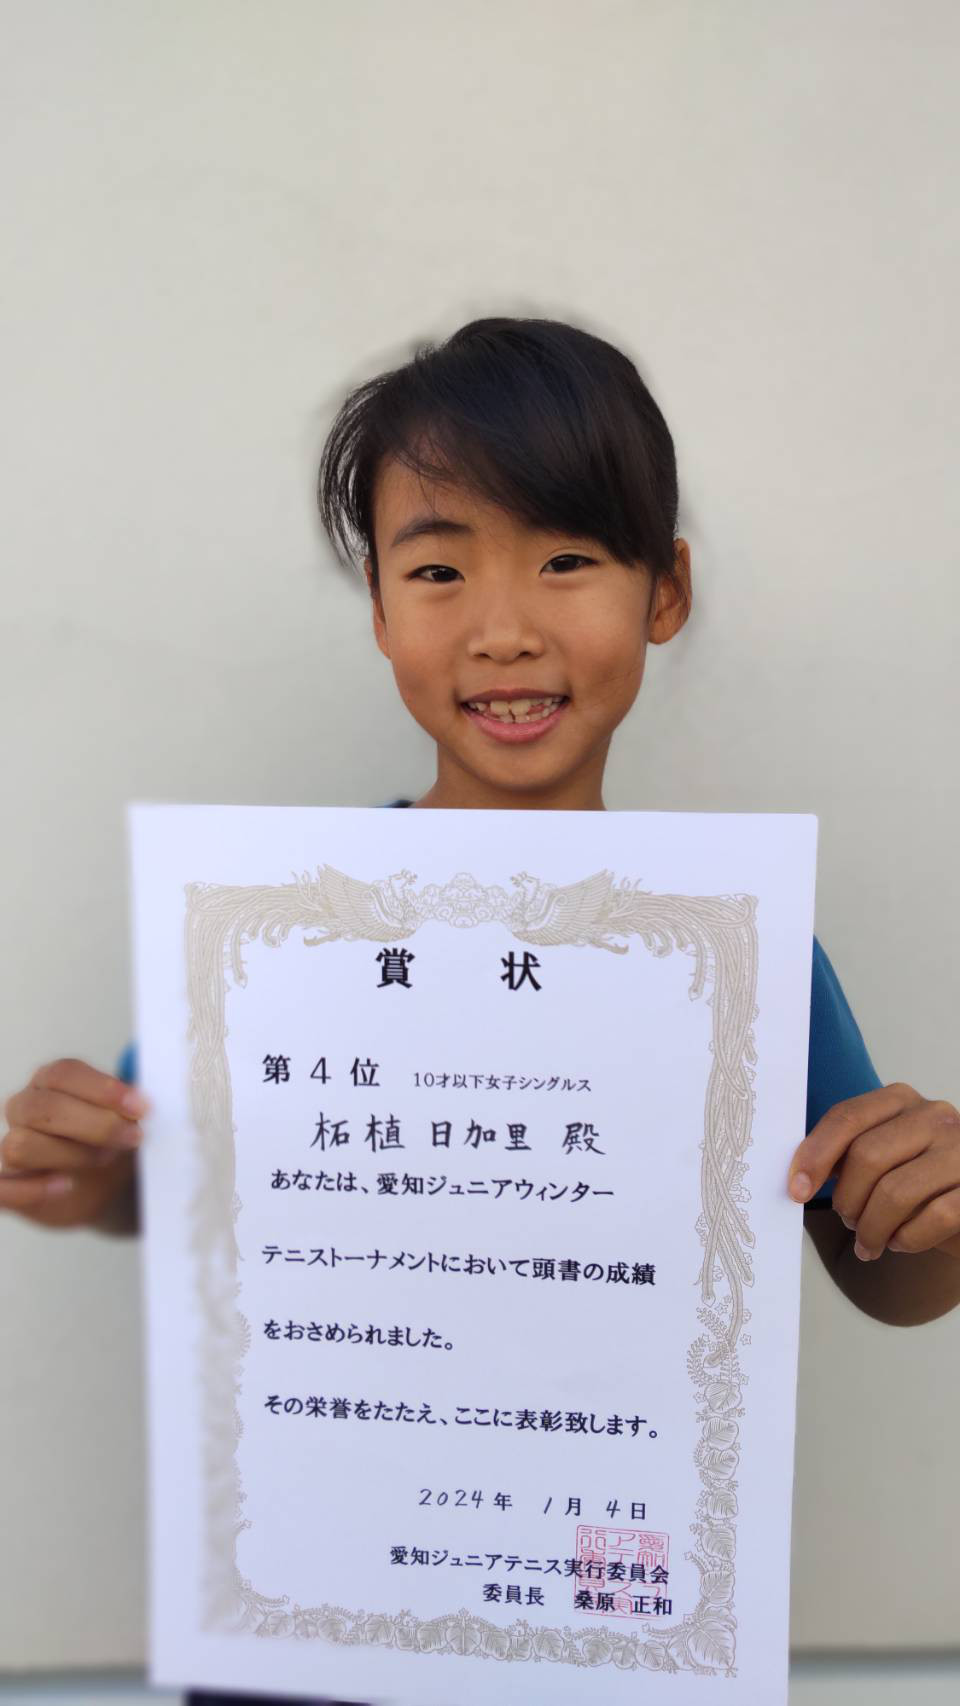 賞状
第4位 10才以下女子シングルス
柘植日加里 殿
あなたは、愛知ジュニアウィンター
テニストーナメントにおいて頭書の成績
をおさめられました。
その栄誉をたたえ、ここに表彰致します。
2024年 1月 4日
愛知ジュニアテニス実行委員会
委員長 桑原 正和